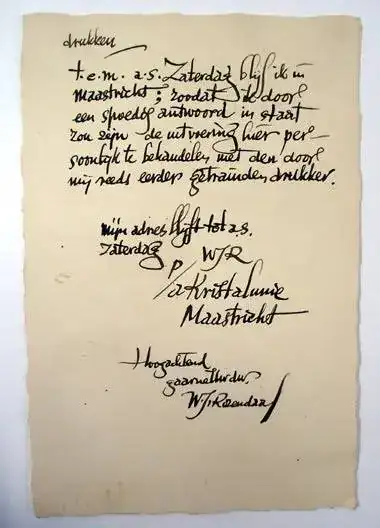 drukken
t.e.m. a.s. Zaterdag blijf ik in
Maastricht; zoodat ik door
een spoedig antwoord in staat
zou zijn de uitvoering hier per-
soonlijk te behandelen met den door
mij reeds eerder getrainden drukker.
mijn adres blijft tot a.s.
Zaterdag WJR
p/a Kristalunie
Maastricht
Hoogachtend
gaarne Uw dw.
W.J. Rozendaal